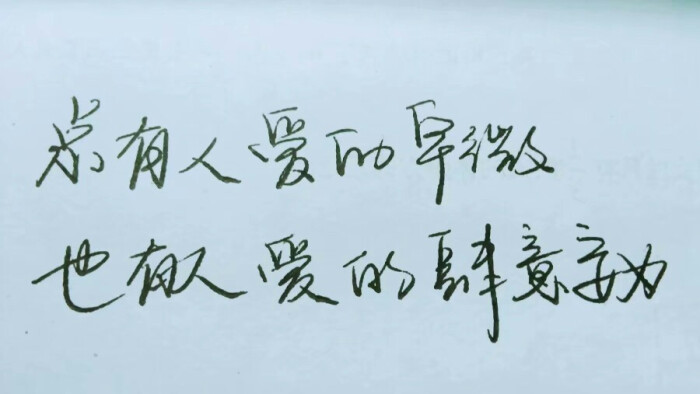 总有人爱的卑微
也有人爱的肆意妄为